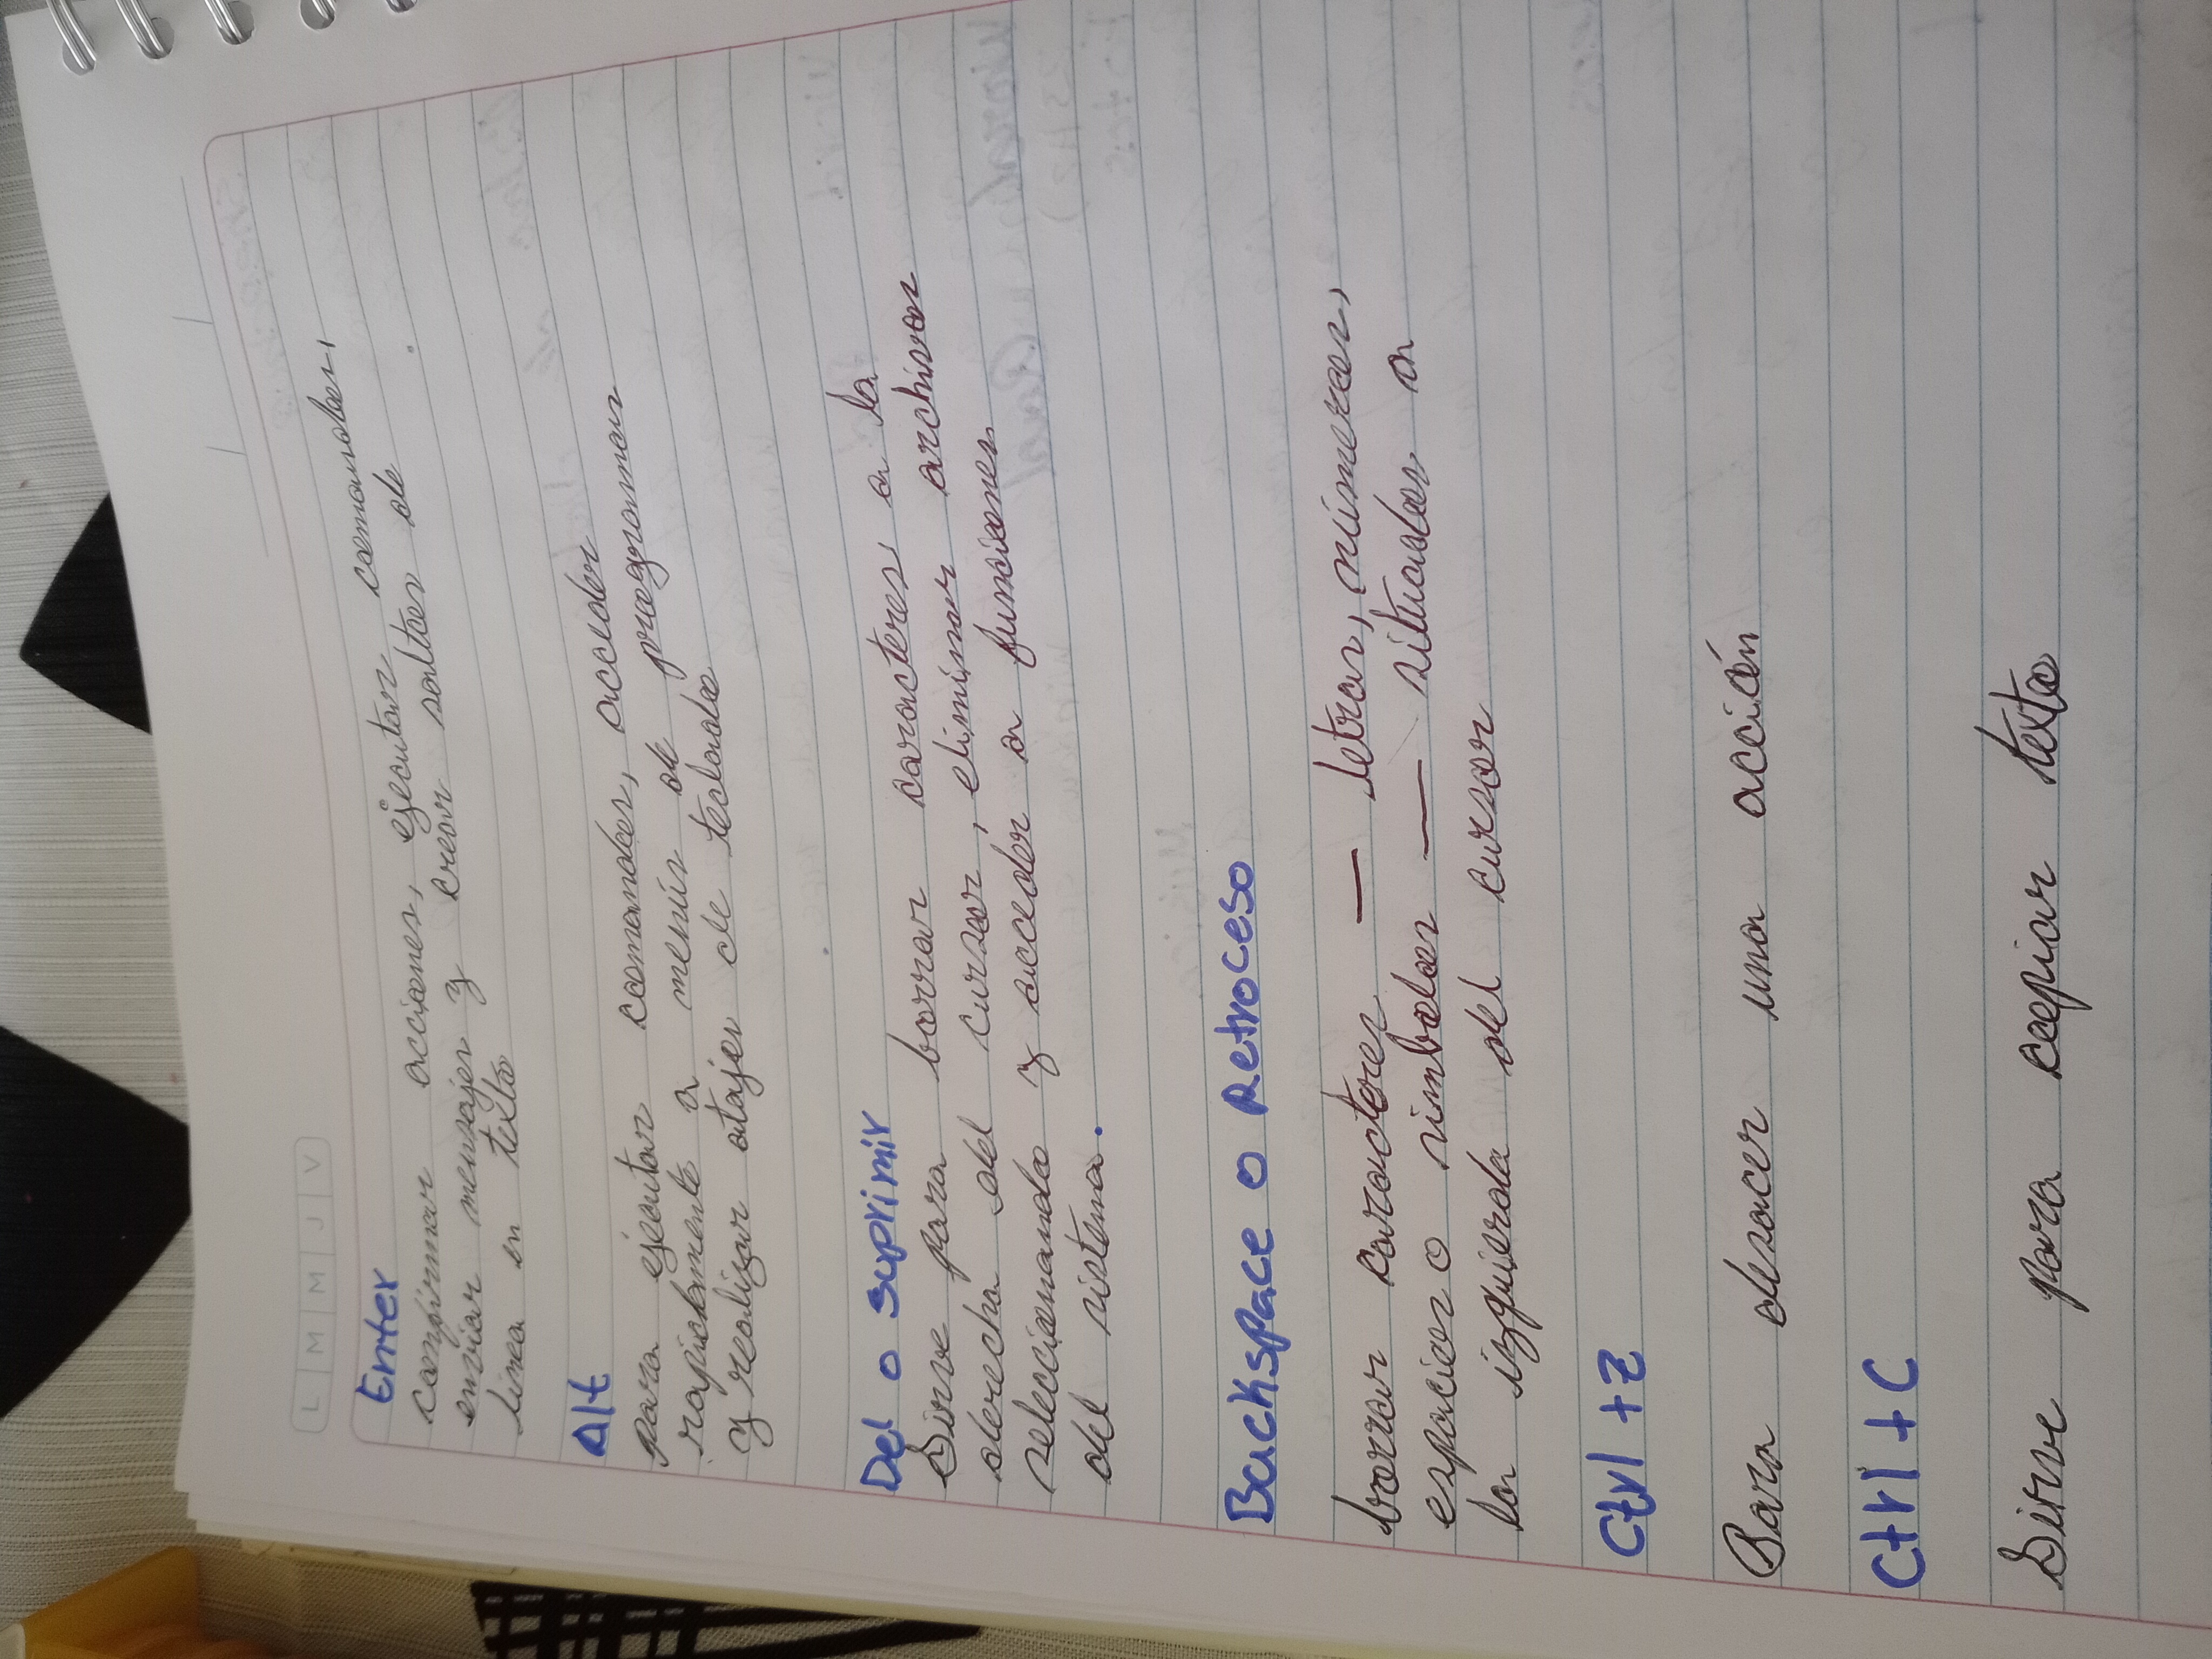 L M M J V
Enter
confirmar acciones, ejecutar comandos,
enviar mensajes y crear saltos de
linea en texto
Alt
para ejecutar comandos, acceder
rapidamente a menús de programas
y realizar atajos de teclado
Del o suprimir
Sirve para borrar caracteres a la
derecha del cursor, eliminar archivos
seleccionando y acceder a funciones
del sistema.
Backspace o Retroceso
borrar caracteres — letras, números,
espacios o simbolos — situados a
la izquierda del cursor
Ctrl + Z
Para desacer una acción
Ctrl + C
Sirve para copiar texto